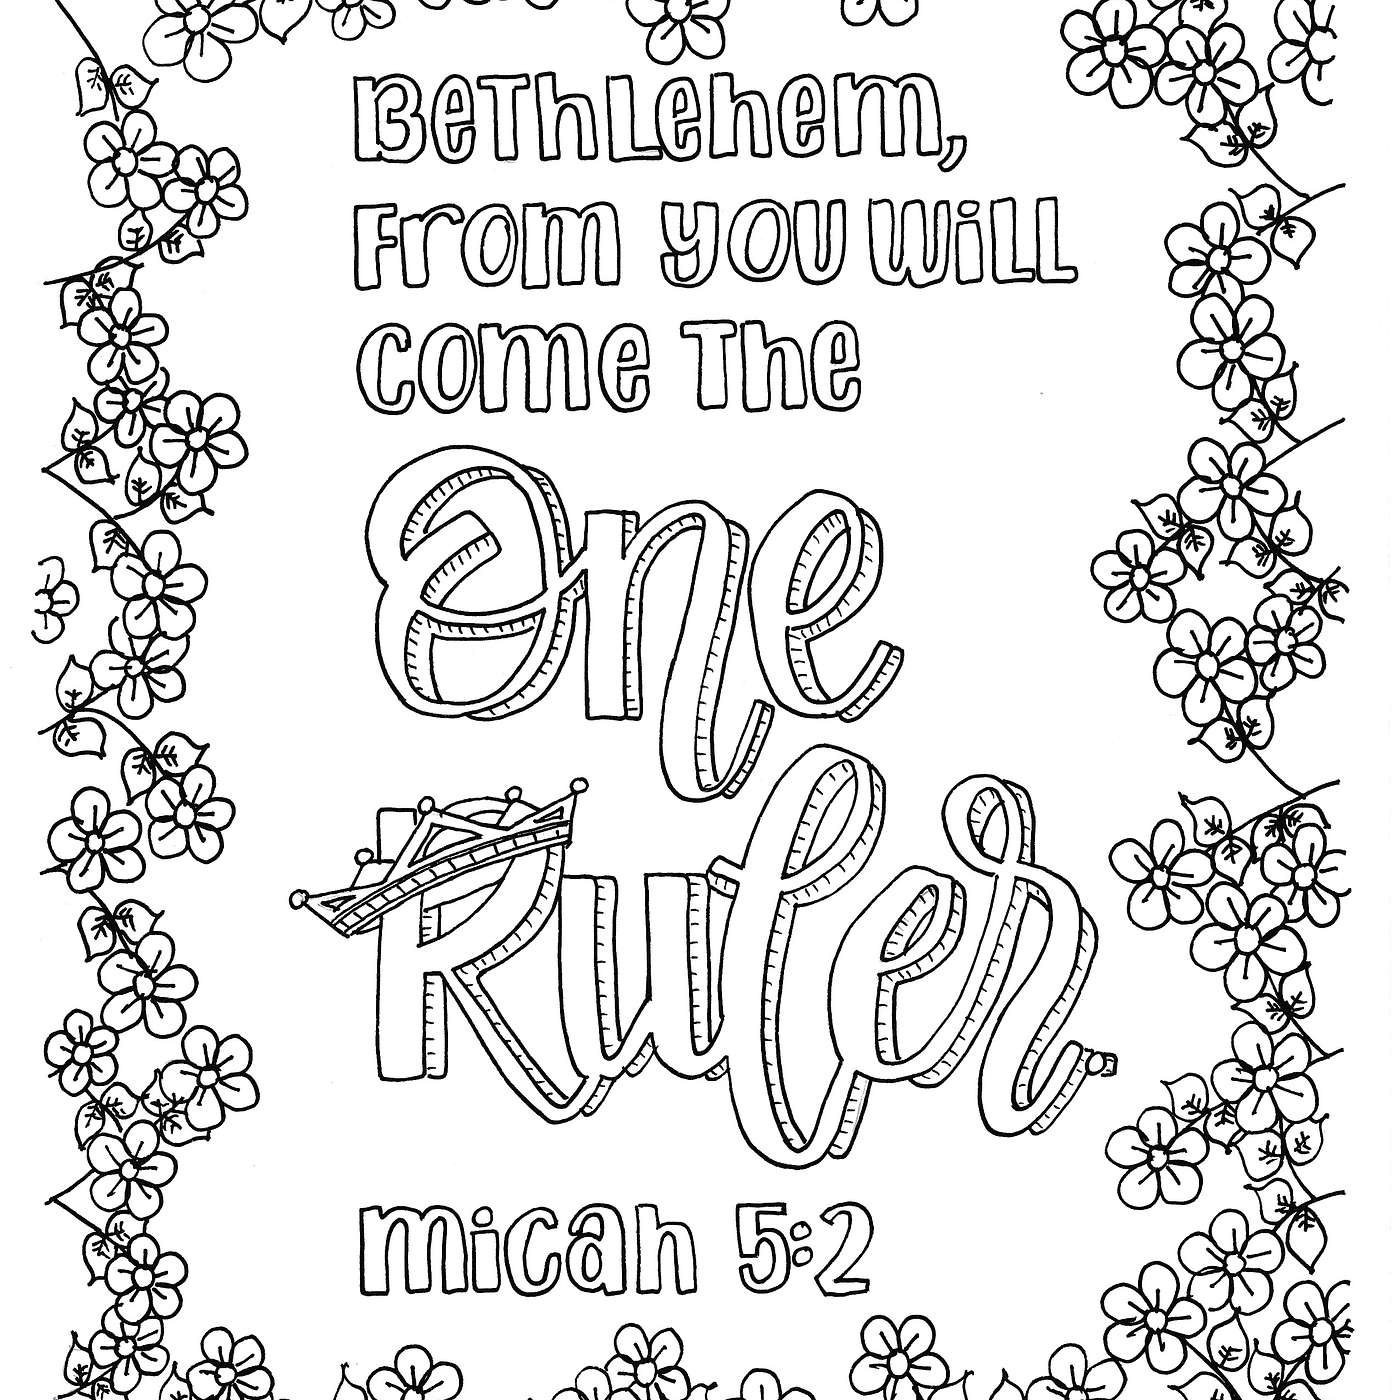 Bethlehem,
From you will
come the
One
Ruler
micah 5:2